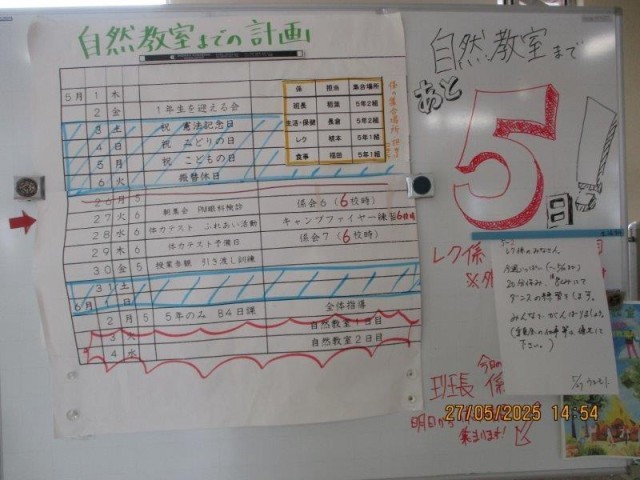 自然教室までの計画
5月 1 木
2 金 1年生を迎える会
3 土 祝 憲法記念日
4 日 祝 みどりの日
5 月 祝 こどもの日
6 火 振替休日
係 担当 集合場所
班長 稲葉 5年2組
生活・保健 長倉 5年2組
レク 5年1組
食事 福田 5年1組
26 月 5 係会6(6校時)
27 火 6 朝集会 PM眼科検診 キャンプファイヤー練習6校時
28 水 6 体力テスト ふれあい活動 係会7(6校時)
29 木 6 体力テスト予備日
30 金 5 授業参観 引き渡し訓練
31 土
6月 1 日
2 月 5 5年のみ 84日課 全体指導
3 火 自然教室1日目
4 水 自然教室2日目
自然教室まで
あと
5日!
レク係
レク係のみなさん
ダンスの練習をします。
みんなで がんばりましょう。
下さい。)
今日の
班長 係
明日から
集まります!
27/05/2025 14:54